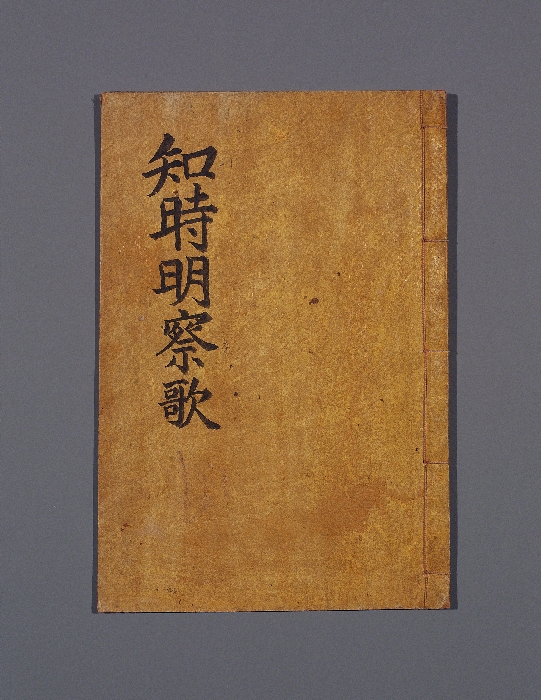 知時明察歌